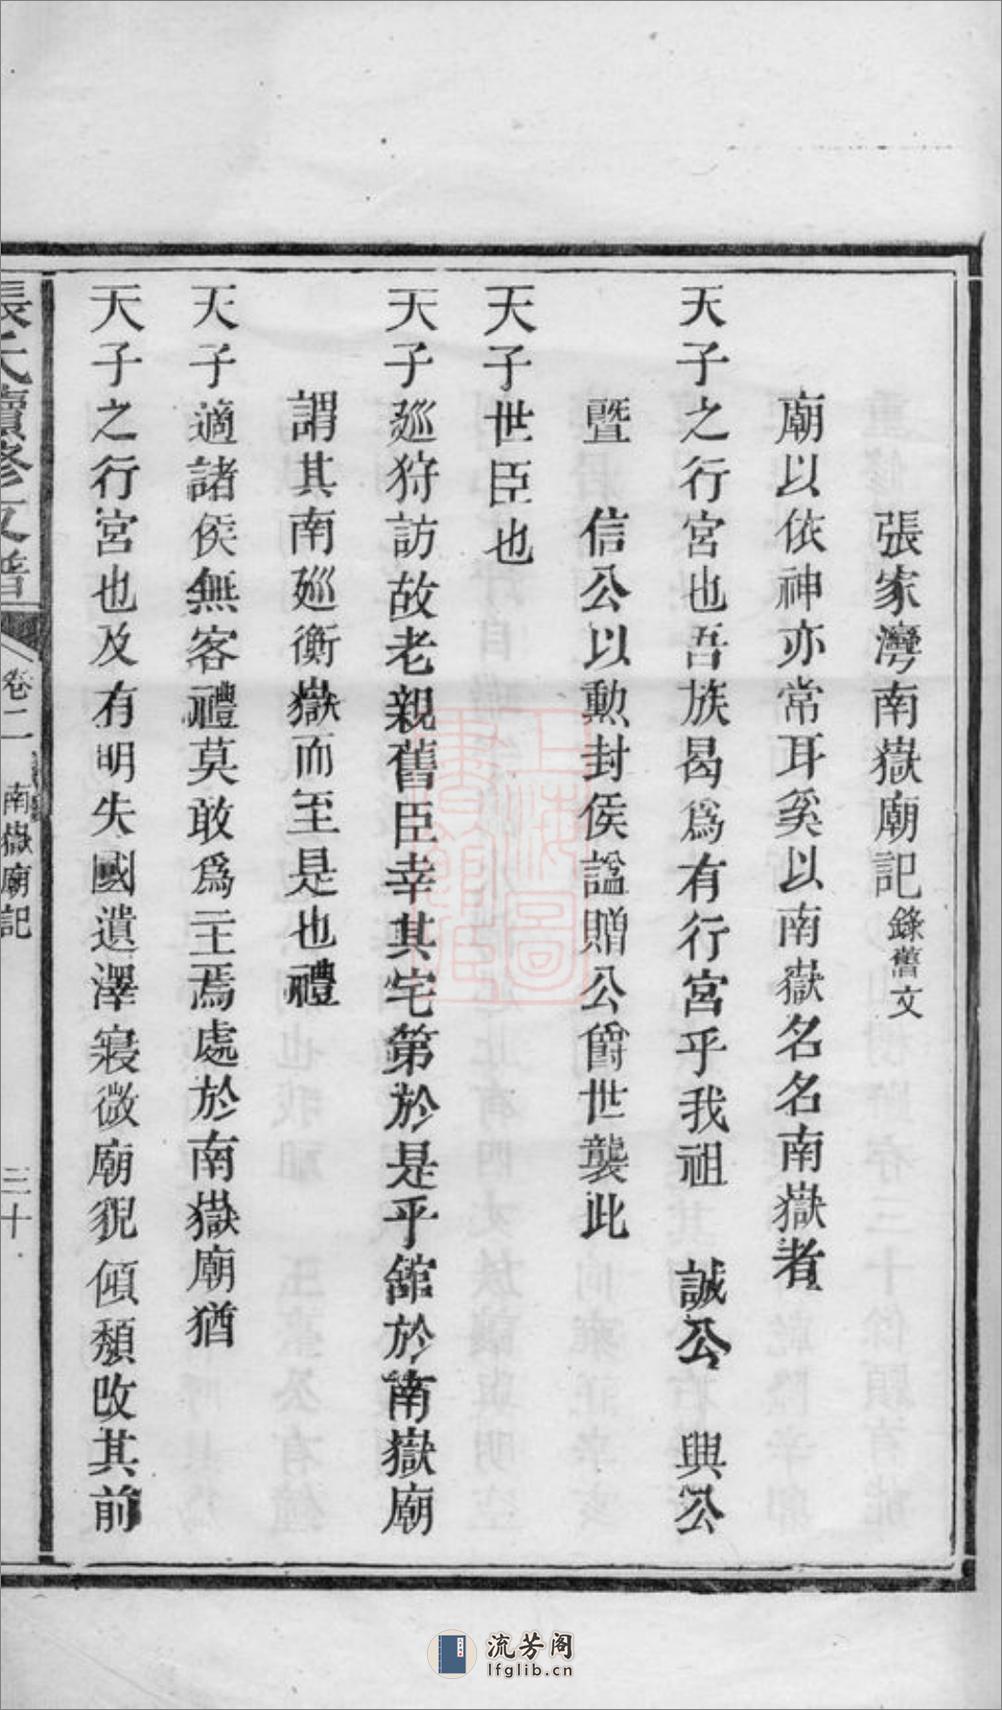 張家灣南嶽廟記錄舊文
廟以依神亦常耳奚以南嶽名名南嶽者
天子之行宮也吾族曷爲有行宮乎我祖　誠公　興公
曁　信公以勳封侯諡贈公爵世襲此
天子世臣也
天子廵狩訪故老親舊臣幸其宅第於是乎舘於南嶽廟
謂其南廵衡嶽而至是也禮
天子適諸侯無客禮莫敢爲主焉處於南嶽廟猶
天子之行宮也及有明失國遺澤寖微廟貌傾頽改其前
張氏續修支譜
卷二
南嶽廟記
三十
上海圖書館藏
流芳阁
lfglib.cn